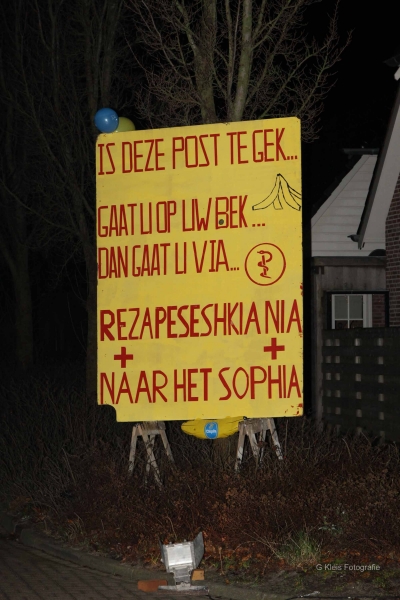 IS DEZE POST TE GEK...
GAAT U OP UW BEK...
DAN GAAT U VIA...
REZAPESESHKIANIA
+ +
NAAR HET SOPHIA
G Kleis Fotografie